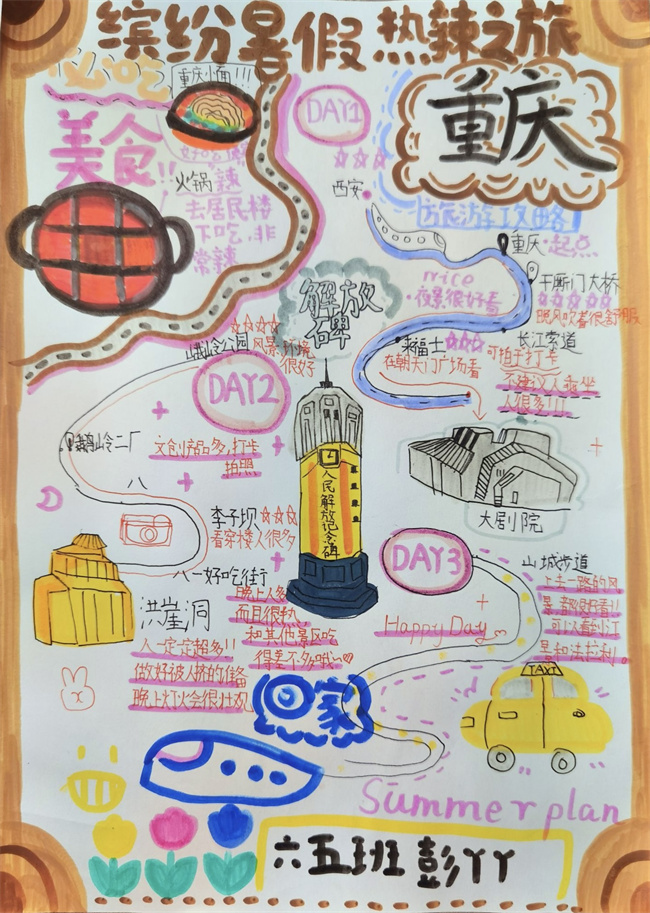 缤纷暑假 热辣之旅
必吃
美食!!
重庆小面!!!
火锅 辣
去居民楼
下吃，非
常辣
DAY1
重庆
旅游攻略
西安
重庆·起点
千厮门大桥
晚风吹着很舒服
nice
夜景很好看
来福士
在朝天门广场看
长江索道
可拍手打卡
不建议人乘坐
人很多!!!
大剧院
解放
碑
人民解放纪念碑
DAY2
鹅岭公园
风景,环境
很好
鹅岭二厂
文创产品多,打卡
拍照
李子坝
看穿楼人很多
八一好吃街
晚上人多
而且很热
和其他景区吃
得差不多哦~
洪崖洞
人一定定超多!!
做好被人挤的准备
晚上灯火会很壮观
DAY3
山城步道
上去一路的风
景,都很好看!!
可以看到江
景和法拉利。
Happy Day
TAXI
回家
Summer plan
六五班 彭丫丫